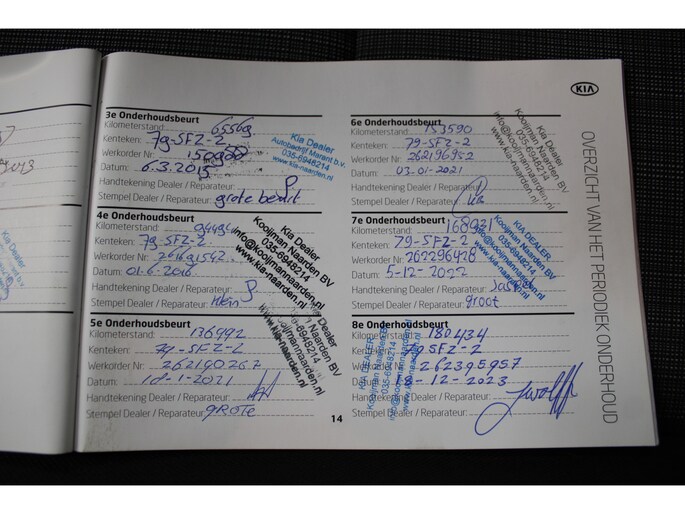 KIA
OVERZICHT VAN HET PERIODIEK ONDERHOUD
3e Onderhoudsbeurt
Kilometerstand: 65569
Kenteken: 79-SFZ-2
Werkorder Nr:
Datum: 6.3.2015
Handtekening Dealer / Reparateur:
Stempel Dealer / Reparateur: grote beurt
Kia Dealer
Autobedrijf Marant b.v.
035-6948214
www.kia-naarden.nl
4e Onderhoudsbeurt
Kilometerstand:
Kenteken: 79-SFZ-2
Werkorder Nr:
Datum: 01.6.2016
Handtekening Dealer / Reparateur:
Stempel Dealer / Reparateur: klein
Kia Dealer
Kooijman Naarden BV
035-6948214
info@kooijmannaarden.nl
www.kia-naarden.nl
5e Onderhoudsbeurt
Kilometerstand: 136992
Kenteken: 79-SFZ-2
Werkorder Nr: 262190267
Datum: 18-1-2021
Handtekening Dealer / Reparateur:
Stempel Dealer / Reparateur: GROTE
14
6e Onderhoudsbeurt
Kilometerstand: 153590
Kenteken: 79-SFZ-2
Werkorder Nr: 262196952
Datum: 03-01-2021
Handtekening Dealer / Reparateur:
Stempel Dealer / Reparateur:
Kia Dealer
Kooijman Naarden BV
035-6948214
info@kooijmannaarden.nl
www.kia-naarden.nl
7e Onderhoudsbeurt
Kilometerstand: 168921
Kenteken: 79-SFZ-2
Werkorder Nr: 262296428
Datum: 5-12-2022
Handtekening Dealer / Reparateur:
Stempel Dealer / Reparateur: groot
KIA DEALER
Kooijman Naarden BV
035-6948214
info@kooijmannaarden.nl
www.kia-naarden.nl
8e Onderhoudsbeurt
Kilometerstand: 180434
Kenteken: 79 SFZ-2
Werkorder Nr: 262395957
Datum: 18-12-2023
Handtekening Dealer / Reparateur:
Stempel Dealer / Reparateur:
KIA DEALER
Kooijman Naarden BV
035-6948214
info@kooijmannaarden.nl
www.kia-naarden.nl